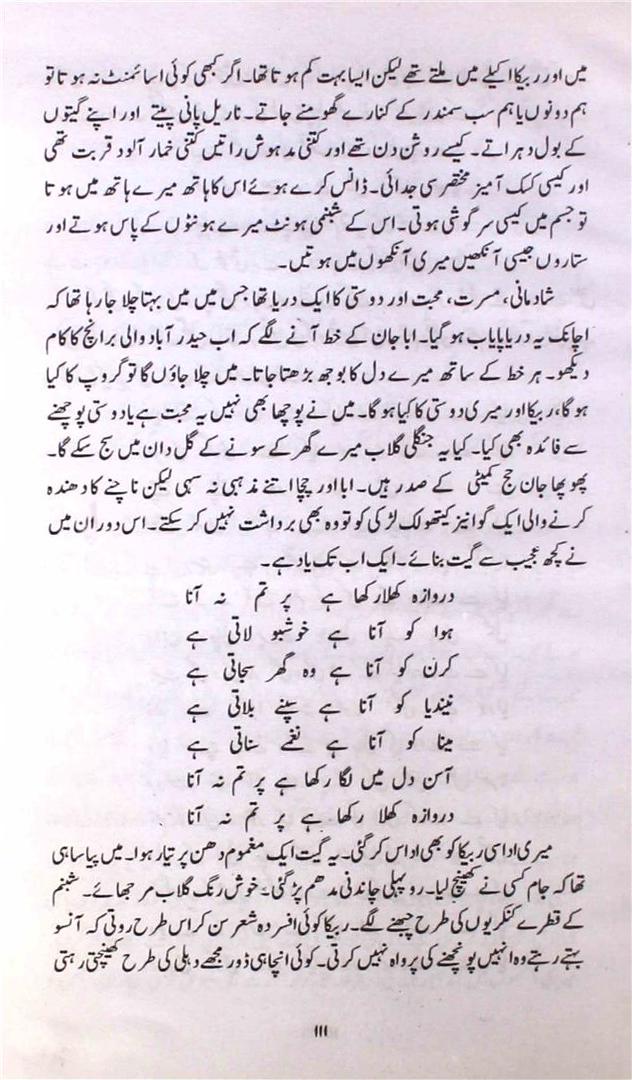 میں اور ربیکا اکیلے میں ملتے تھے لیکن ایسا بہت کم ہوتا تھا۔ اگر کبھی کوئی اسائمنٹ نہ ہوتا تو
ہم دونوں یا ہم سب سمندر کے کنارے گھومنے جاتے۔ ناریل پانی پیتے اور اپنے گیتوں
کے بول دہراتے۔ کیسے روشن دن تھے اور کتنی مدہوش راتیں کتنی خمار آلود قربت تھی
اور کیسی کسک آمیز مختصر سی جدائی۔ ڈانس کرے ہوئے اس کا ہاتھ میرے ہاتھ میں ہوتا
تو جسم میں کیسی سرگوشی ہوتی۔ اس کے شبنمی ہونٹ میرے ہونٹوں کے پاس ہوتے اور
ستاروں جیسی آنکھیں میری آنکھوں میں ہوتیں۔
شادمانی، مسرت، محبت اور دوستی کا ایک دریا تھا جس میں میں بہتا چلا جارہا تھا کہ
اچانک یہ دریا پایاب ہو گیا۔ ابا جان کے خط آنے لگے کہ اب حیدر آباد والی برانچ کا کام
دیکھو۔ ہر خط کے ساتھ میرے دل کا بوجھ بڑھتا جاتا۔ میں چلا جاؤں گا تو گروپ کا کیا
ہو گا، ربیکا اور میری دوستی کا کیا ہو گا۔ میں نے پوچھا بھی نہیں یہ محبت ہے یا دوستی پوچھنے
سے فائدہ بھی کیا۔ کیا یہ جنگلی گلاب میرے گھر کے سونے کے گل دان میں سج سکے گا۔
پھوپھا جان حج کمیٹی کے صدر ہیں۔ ابا اور چچا اتنے مذہبی نہ سہی لیکن ناچنے کا دھندہ
کرنے والی ایک گوانیز کیتھولک لڑکی کو تو وہ بھی برداشت نہیں کر سکتے۔ اس دوران میں
نے کچھ عجیب سے گیت بنائے۔ ایک اب تک یاد ہے۔
دروازہ کھلا رکھا ہے پر تم نہ آنا
ہوا کو آنا ہے خوشبو لاتی ہے
کرن کو آنا ہے وہ گھر سجاتی ہے
نیندیا کو آنا ہے سپنے بلاتی ہے
مینا کو آنا ہے نغمے سناتی ہے
آسن دل میں لگا رکھا ہے پر تم نہ آنا
دروازہ کھلا رکھا ہے پر تم نہ آنا
میری اداسی ربیکا کو بھی اداس کر گئی۔ یہ گیت ایک مغموم دھن پر تیار ہوا۔ میں پیاسا ہی
تھا کہ جام کسی نے کھینچ لیا۔ روپہلی چاندنی مدھم پڑ گئی۔ خوش رنگ گلاب مرجھائے۔ شبنم
کے قطرے کنکریوں کی طرح چبھنے لگے۔ ربیکا کوئی افسردہ شعر سن کر اس طرح روتی کہ آنسو
بہتے رہتے وہ انہیں پونچھنے کی پرواہ نہیں کرتی۔ کوئی انچاہی ڈور مجھے دہلی کی طرح کھینچتی رہتی
۱۱۱